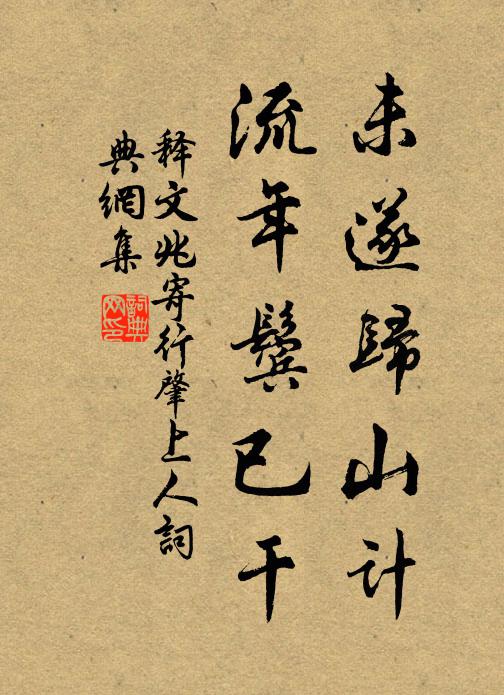 未遂歸山计
流年鬓已干
释文兆寄行肇上人詞
典網集
詞典
网印